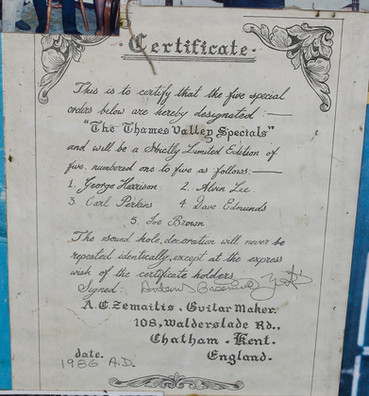 Certificate
This is to certify that the five special
orders below are hereby designated :—
"The Thames Valley Specials"
and will be a Strictly Limited Edition of
five, numbered one to five as follows:—
1. George Harrison. 2. Alvin Lee.
3. Carl Perkins 4. Dave Edmunds
5. Joe Brown
The sound hole, decoration will never be
repeated identically, except at the express
wish of the certificate holders.
Signed:
A.C. Zemaitis. Guitar Maker.
108, Walderslade Rd.,
Chatham. Kent.
England.
date.
1986 A.D.